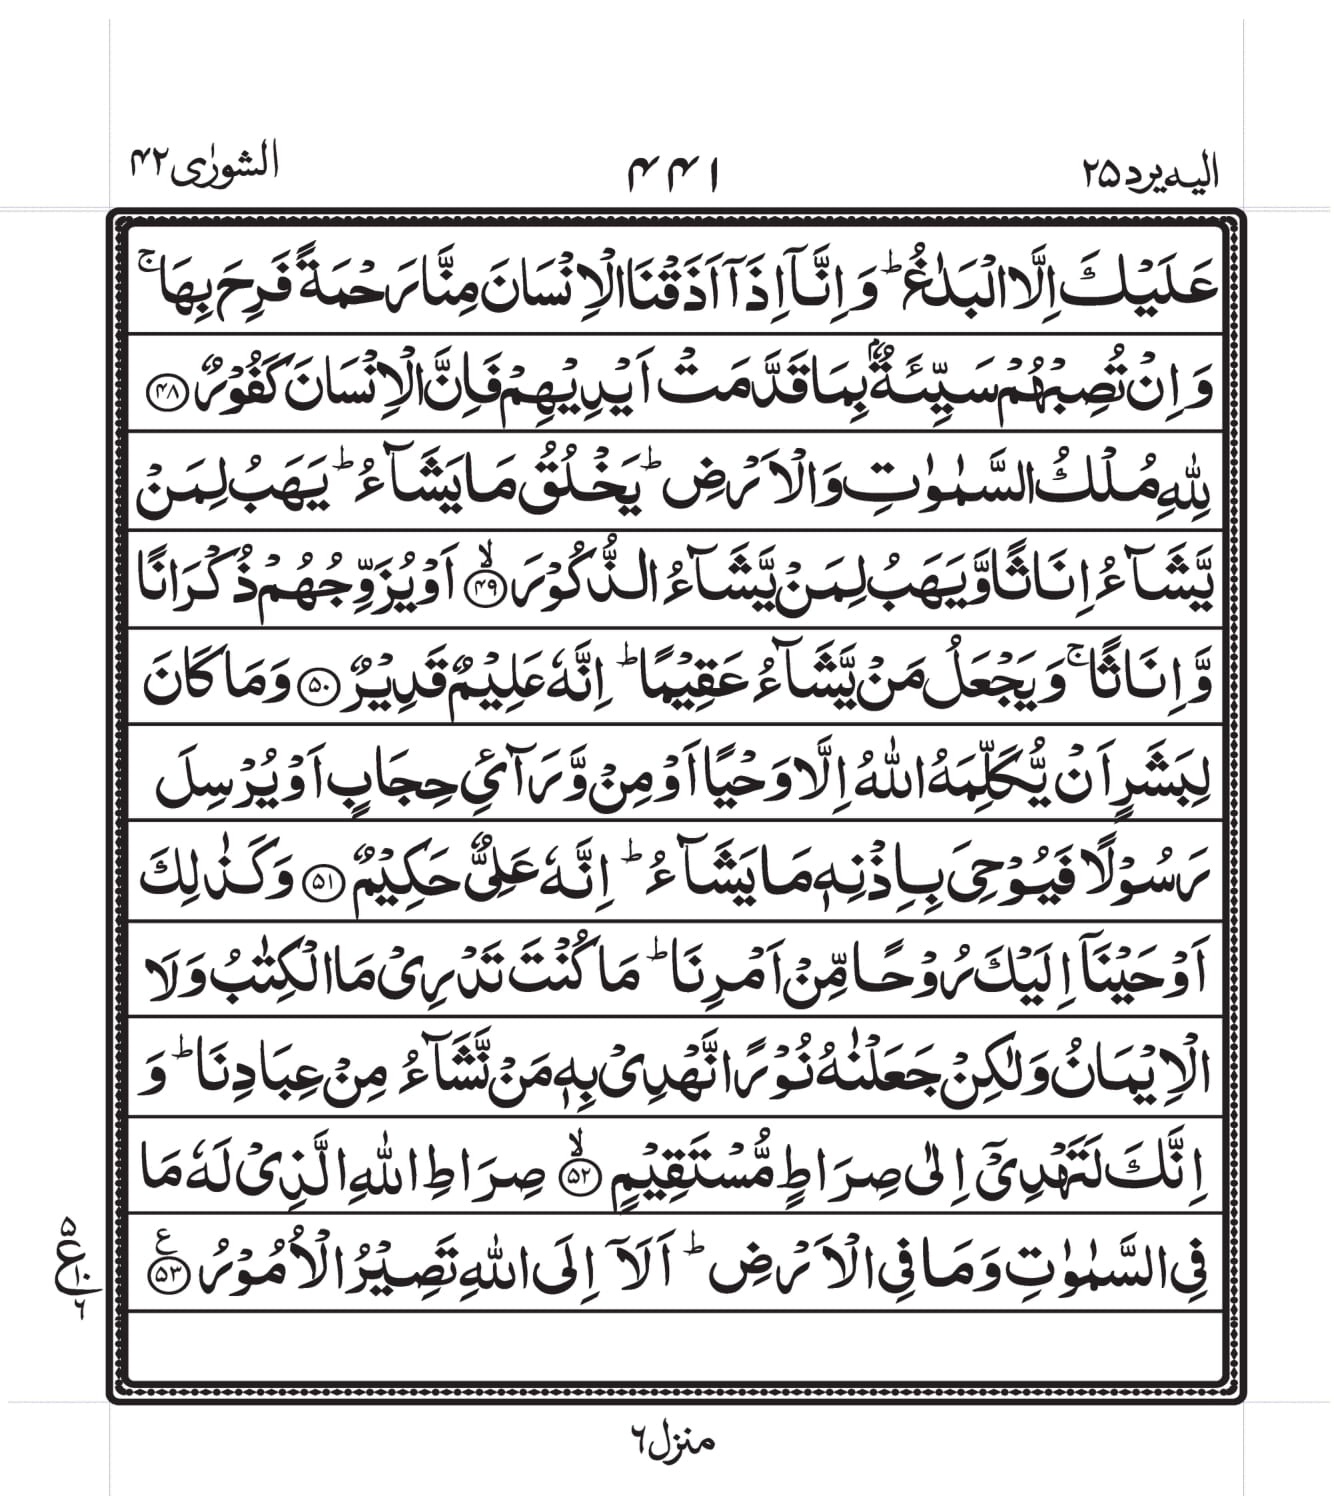 الیه یرد ۲۵
۴۴۱
الشورٰی ۴۲
عَلَیۡكَ اِلَّا الۡبَلٰغُ ؕ وَ اِنَّاۤ اِذَاۤ اَذَقۡنَا الۡاِنۡسَانَ مِنَّا رَحۡمَةً فَرِحَ بِهَا ۚ
وَ اِنۡ تُصِبۡهُمۡ سَیِّئَةٌۢ بِمَا قَدَّمَتۡ اَیۡدِیۡهِمۡ فَاِنَّ الۡاِنۡسَانَ كَفُوۡرٌ ﴿۴۸﴾
لِلّٰهِ مُلۡكُ السَّمٰوٰتِ وَ الۡاَرۡضِ ؕ یَخۡلُقُ مَا یَشَآءُ ؕ یَهَبُ لِمَنۡ
یَّشَآءُ اِنَاثًا وَّ یَهَبُ لِمَنۡ یَّشَآءُ الذُّكُوۡرَ ﴿ۙ۴۹﴾ اَوۡ یُزَوِّجُهُمۡ ذُكۡرَانًا
وَّ اِنَاثًا ۚ وَ یَجۡعَلُ مَنۡ یَّشَآءُ عَقِیۡمًا ؕ اِنَّهٗ عَلِیۡمٌ قَدِیۡرٌ ﴿۵۰﴾ وَ مَا كَانَ
لِبَشَرٍ اَنۡ یُّكَلِّمَهُ اللّٰهُ اِلَّا وَحۡیًا اَوۡ مِنۡ وَّرَآیِٔ حِجَابٍ اَوۡ یُرۡسِلَ
رَسُوۡلًا فَیُوۡحِیَ بِاِذۡنِهٖ مَا یَشَآءُ ؕ اِنَّهٗ عَلِیٌّ حَكِیۡمٌ ﴿۵۱﴾ وَ كَذٰلِكَ
اَوۡحَیۡنَاۤ اِلَیۡكَ رُوۡحًا مِّنۡ اَمۡرِنَا ؕ مَا كُنۡتَ تَدۡرِیۡ مَا الۡكِتٰبُ وَ لَا
الۡاِیۡمَانُ وَ لٰكِنۡ جَعَلۡنٰهُ نُوۡرًا نَّهۡدِیۡ بِهٖ مَنۡ نَّشَآءُ مِنۡ عِبَادِنَا ؕ وَ
اِنَّكَ لَتَهۡدِیۡۤ اِلٰی صِرَاطٍ مُّسۡتَقِیۡمٍ ﴿ۙ۵۲﴾ صِرَاطِ اللّٰهِ الَّذِیۡ لَهٗ مَا
فِی السَّمٰوٰتِ وَ مَا فِی الۡاَرۡضِ ؕ اَلَاۤ اِلَی اللّٰهِ تَصِیۡرُ الۡاُمُوۡرُ ﴿۵۳﴾ ع
۵
ع
۱۰
۶
منزل ۶